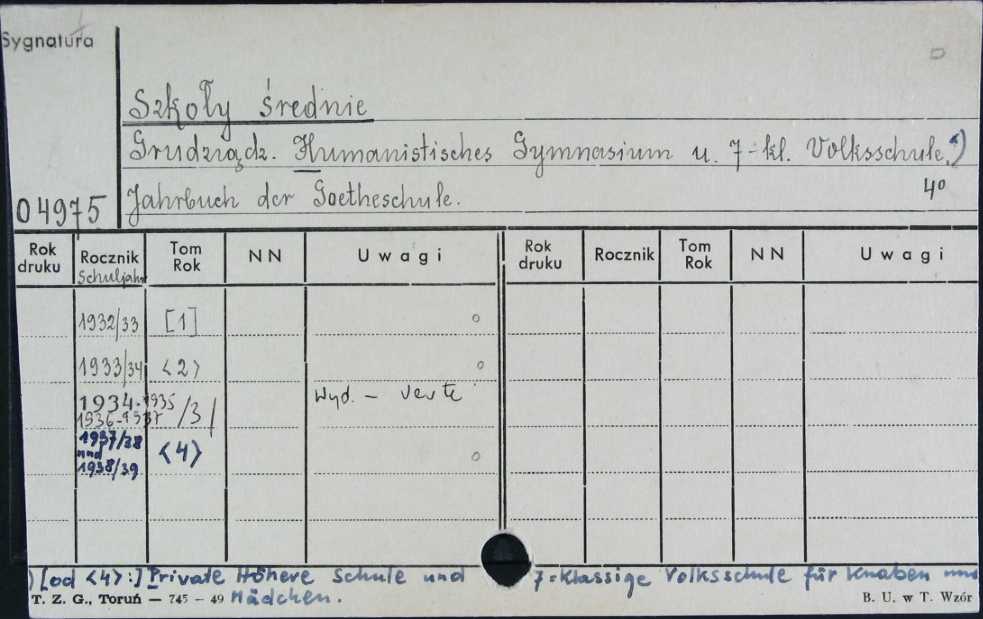 Sygnatura
Szkoły średnie
Grudziądz. Humanistisches Gymnasium u. 7-kl. Volksschule.*)
4°
04975 Jahrbuch der Goetheschule.
Rok druku Rocznik Schuljahr Tom Rok NN Uwagi Rok druku Rocznik Tom Rok NN Uwagi
1932/33 [1] o
1933/34 <2> o
1934-1935
1936-1937 /3/ Wyd. – verte
1937/38
und <4> o
1938/39
) [od <4>:] Private Höhere Schule und 7=klassige Volksschule für Knaben und
Mädchen.
T. Z. G., Toruń — 745 – 49 B. U. w T. Wzór